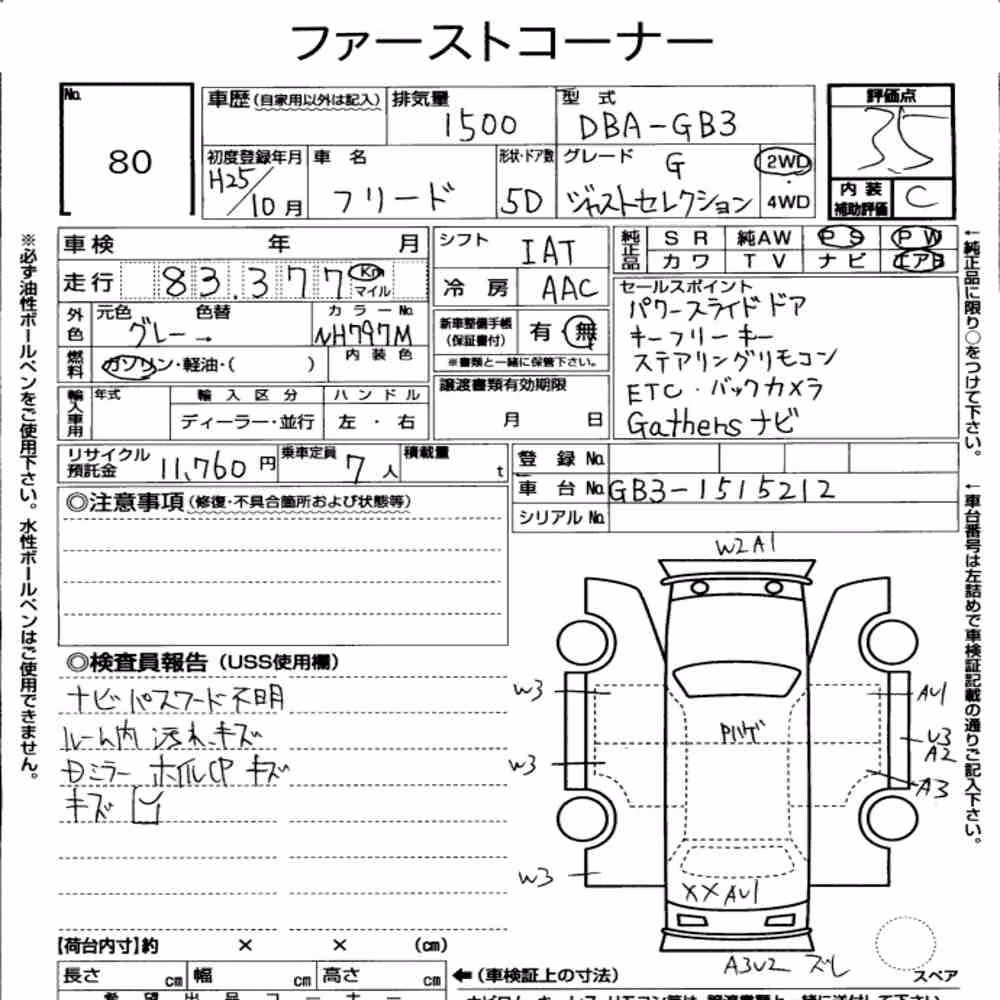 ファーストコーナー
No. 80
車歴(自家用以外は記入) 排気量 1500 型式 DBA-GB3 評価点 3.5
初度登録年月 H25/10月 車名 フリード 形状・ドア数 5D グレード G ジャストセレクション 2WD・4WD 内装補助評価 C
車検 年 月 シフト IAT 純正品 SR 純AW PS PW
カワ TV ナビ エアB
走行 83,377 Km マイル 冷房 AAC
セールスポイント
パワースライドドア
キーフリーキー
ステアリングリモコン
ETC・バックカメラ
Gathersナビ
外色 元色 グレー → 色替 カラーNo. NH797M
新車整備手帳(保証書付) 有・無
※書類と一緒に保管下さい。
燃料 ガソリン・軽油・( ) 内装色
譲渡書類有効期限 月 日
輸入車用 年式 輸入区分 ハンドル
ディーラー・並行 左・右
リサイクル預託金 11,760円 乗車定員 7人 積載量 t
登録No.
車台No. GB3-1515212
シリアルNo.
◎注意事項(修復・不具合箇所および状態等)
◎検査員報告(USS使用欄)
ナビパスワード不明
ルーム内 汚れ、キズ
ホイルCP キズ
キズ
W2A1
W3
W3
W3
Pハゲ
AU1
U3
A2
A3
XX AU1
A3U2 ズレ
スペア
【荷台内寸】約 × × (cm)
長さ cm 幅 cm 高さ cm ←(車検証上の寸法)
※必ず油性ボールペンをご使用下さい。水性ボールペンはご使用できません。
←純正品に限り○をつけて下さい。
←車台番号は左詰めで車検証記載の通りご記入下さい。